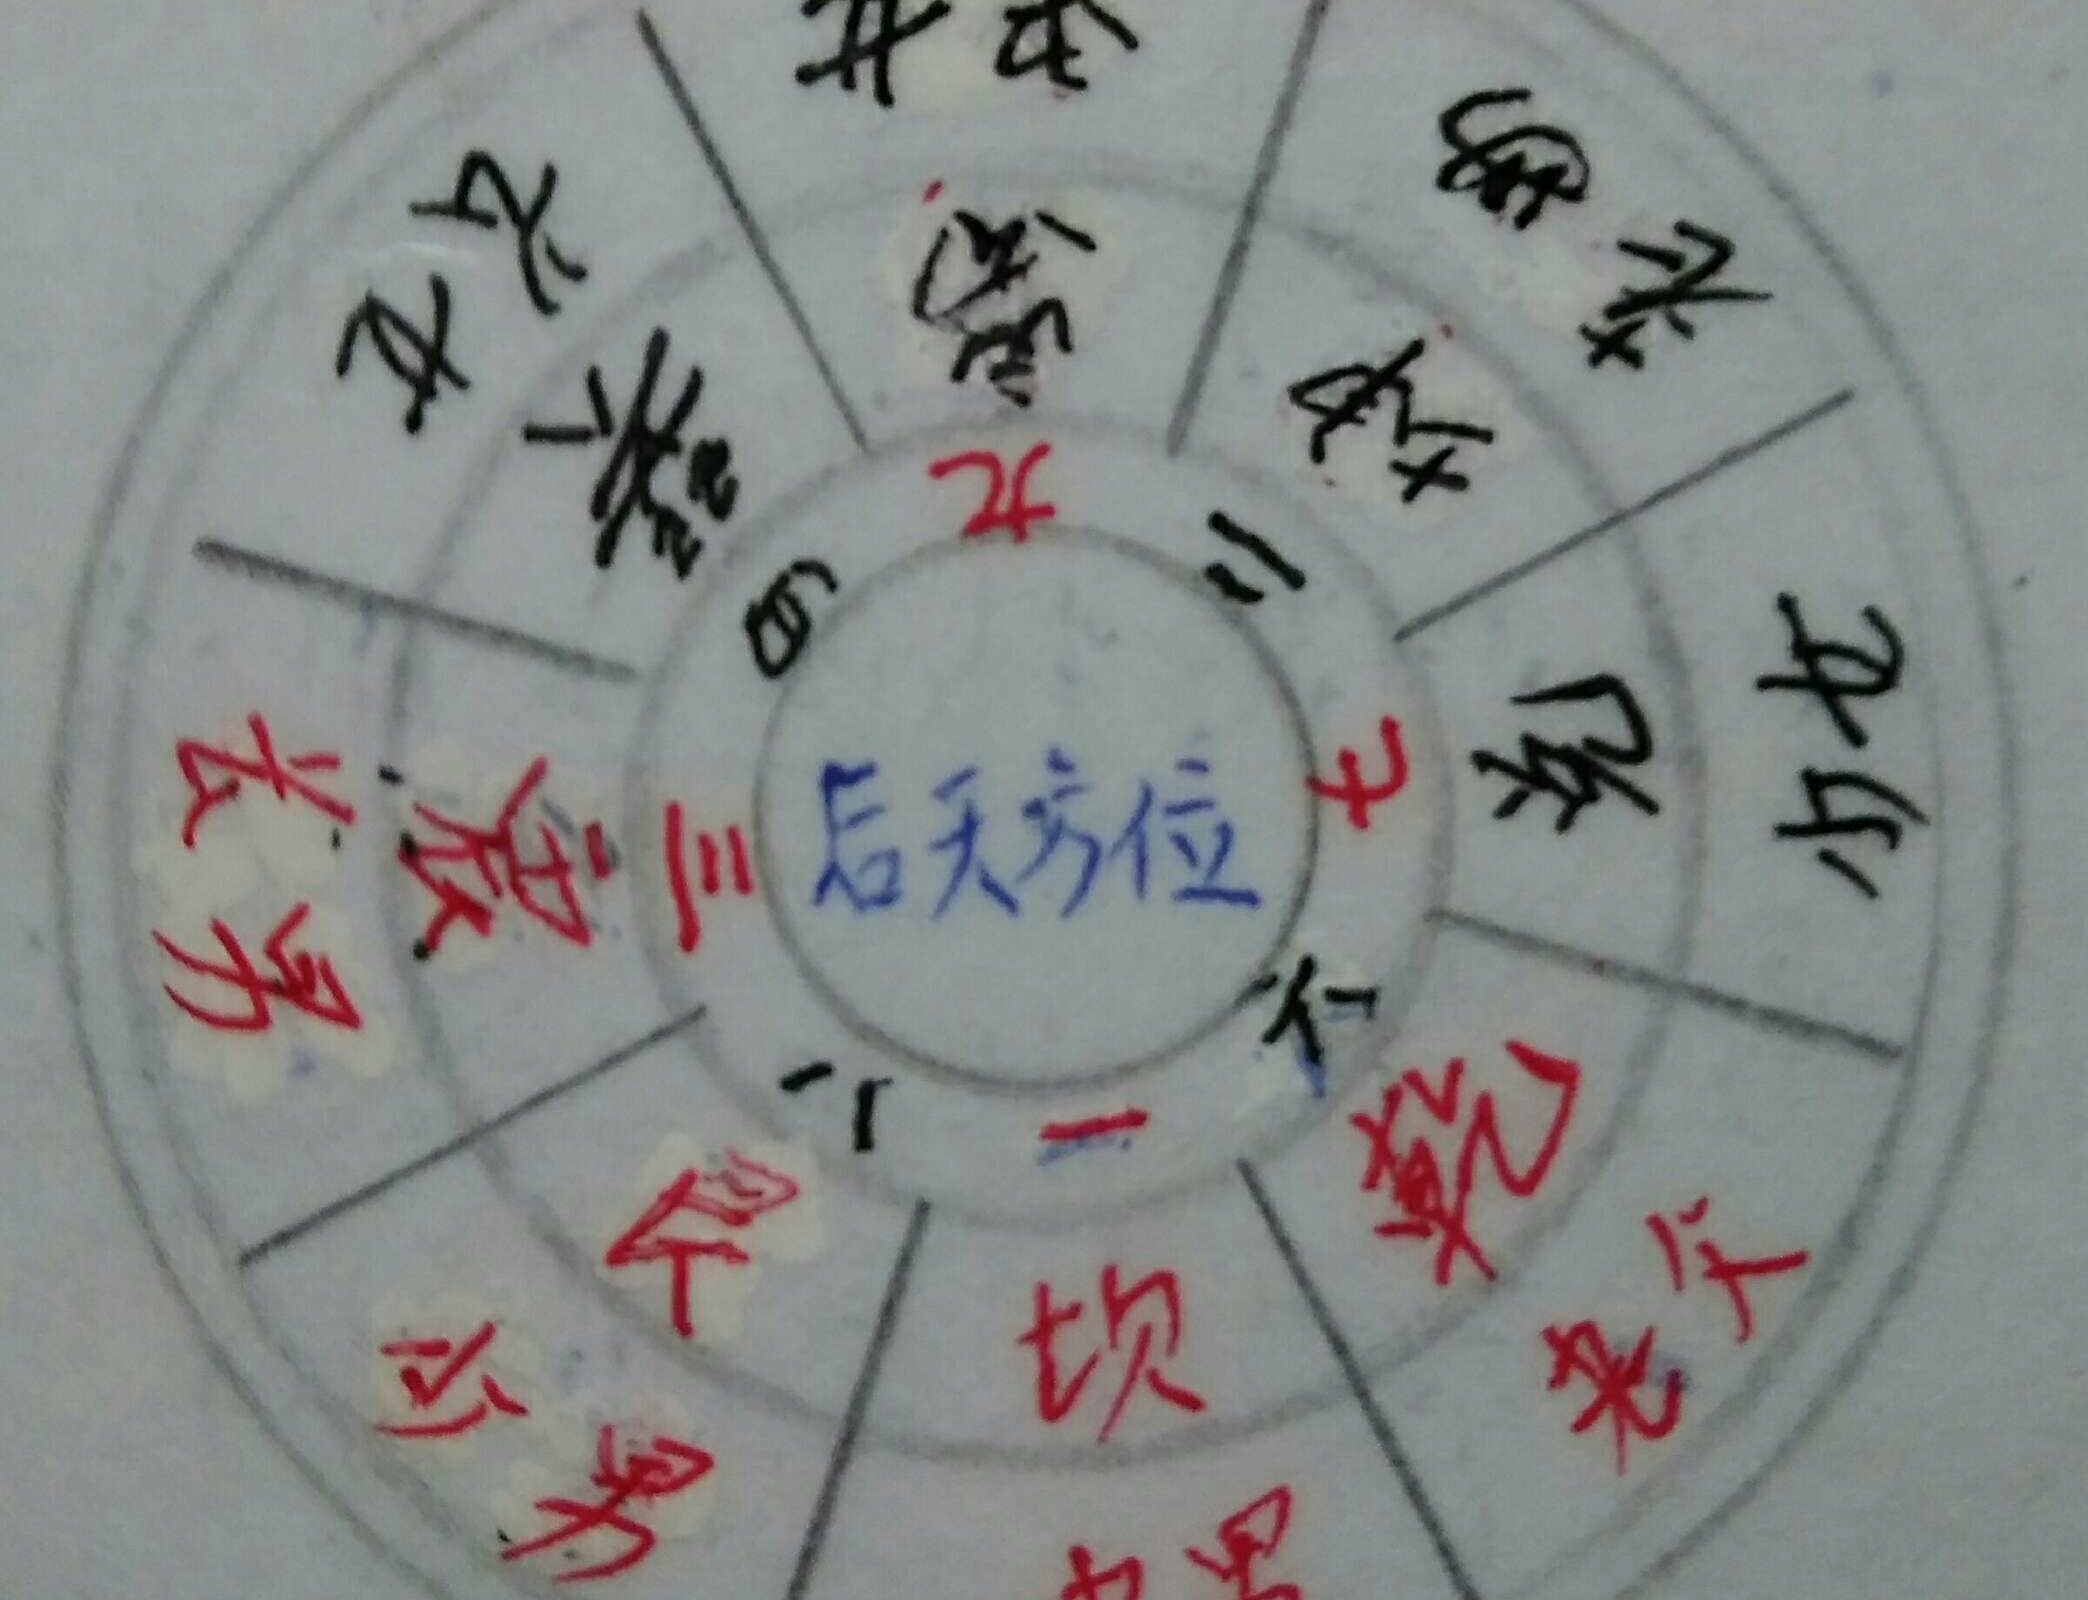 后天方位
九
二
七
六
一
八
三
四
離
坤
兑
乾
坎
艮
震
巽
老母
少女
老父
中男
少男
长男
长女